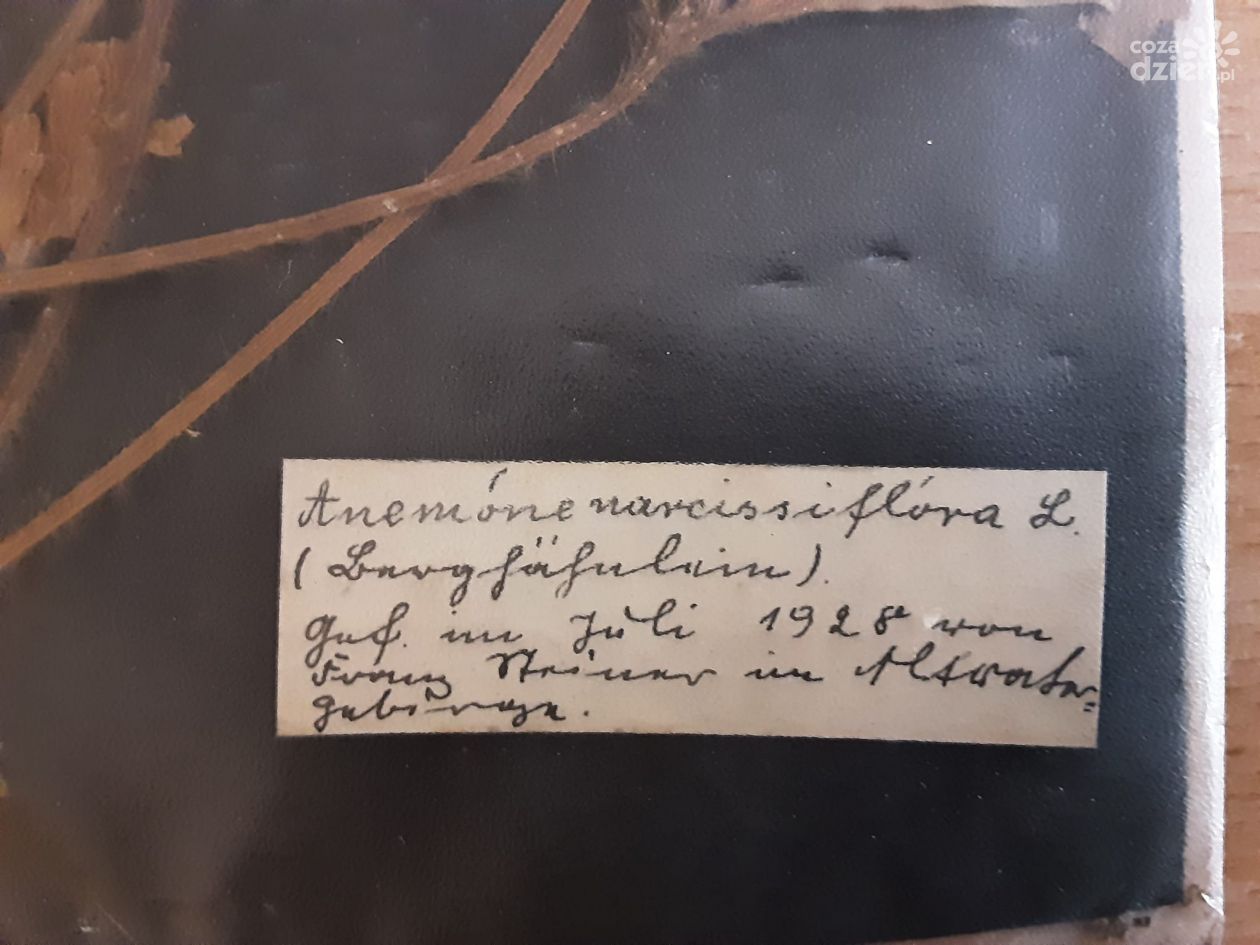 coza
dzien.pl
Anemóne narcissiflóra L.
(Berghähnlein).
Gef. im Juli 1928 von
Franz Steiner im Altvater=
gebirge.